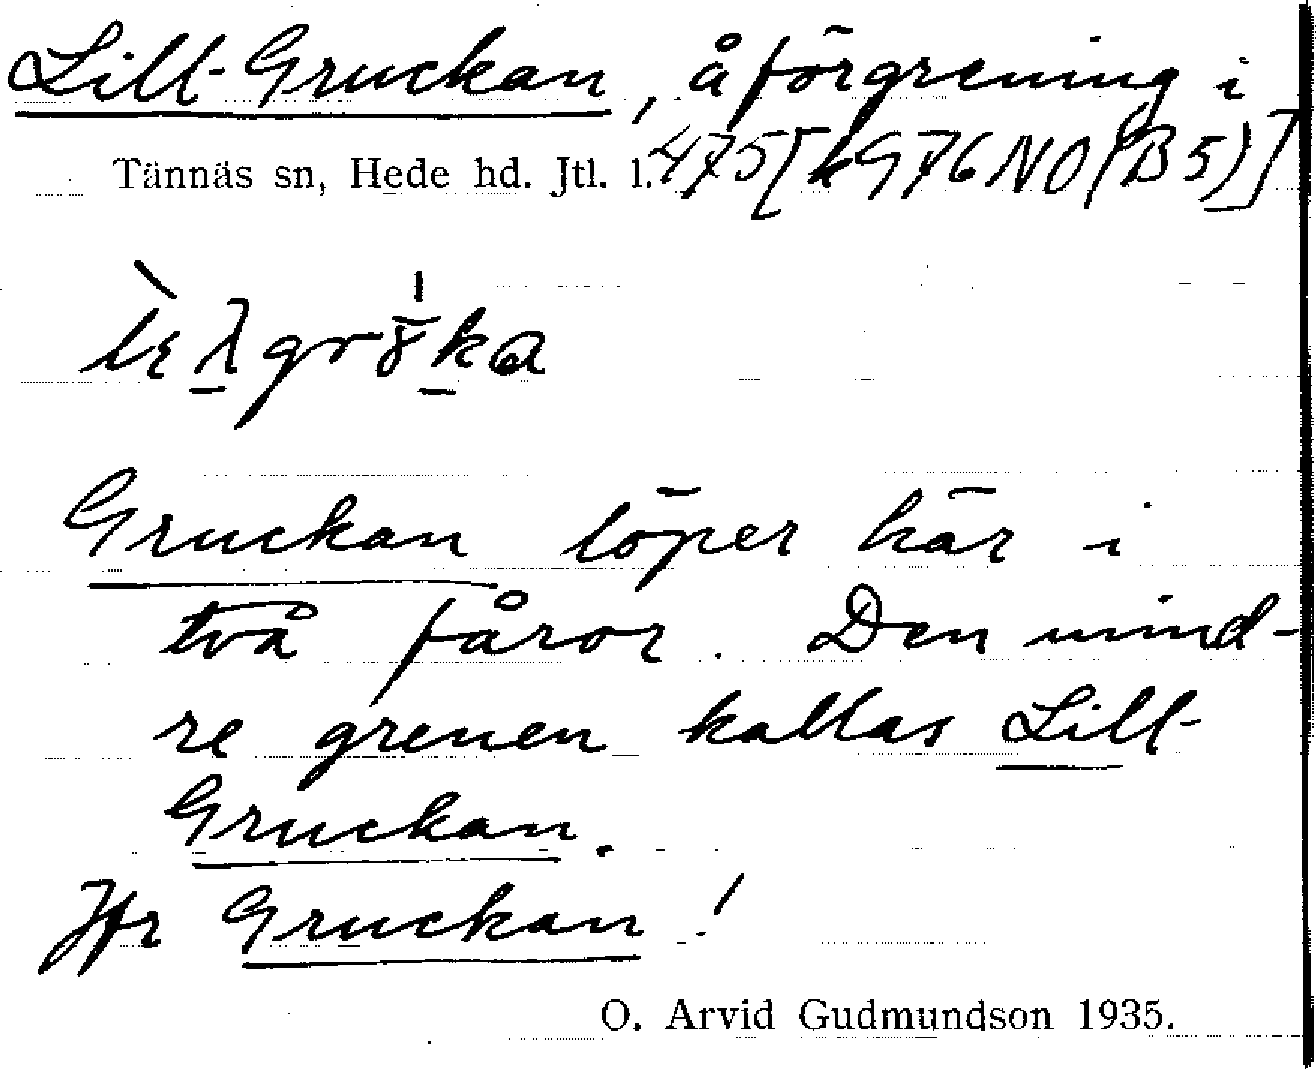 Lill-Gruckan, åförgrening i
Tännäs sn, Hede hd. Jtl. l. 475[k976NO(B5)]
Gruckan löper här i
två fåror. Den mind-
re grenen kallas Lill-
Gruckan.
Jfr Gruckan!
O. Arvid Gudmundson 1935.